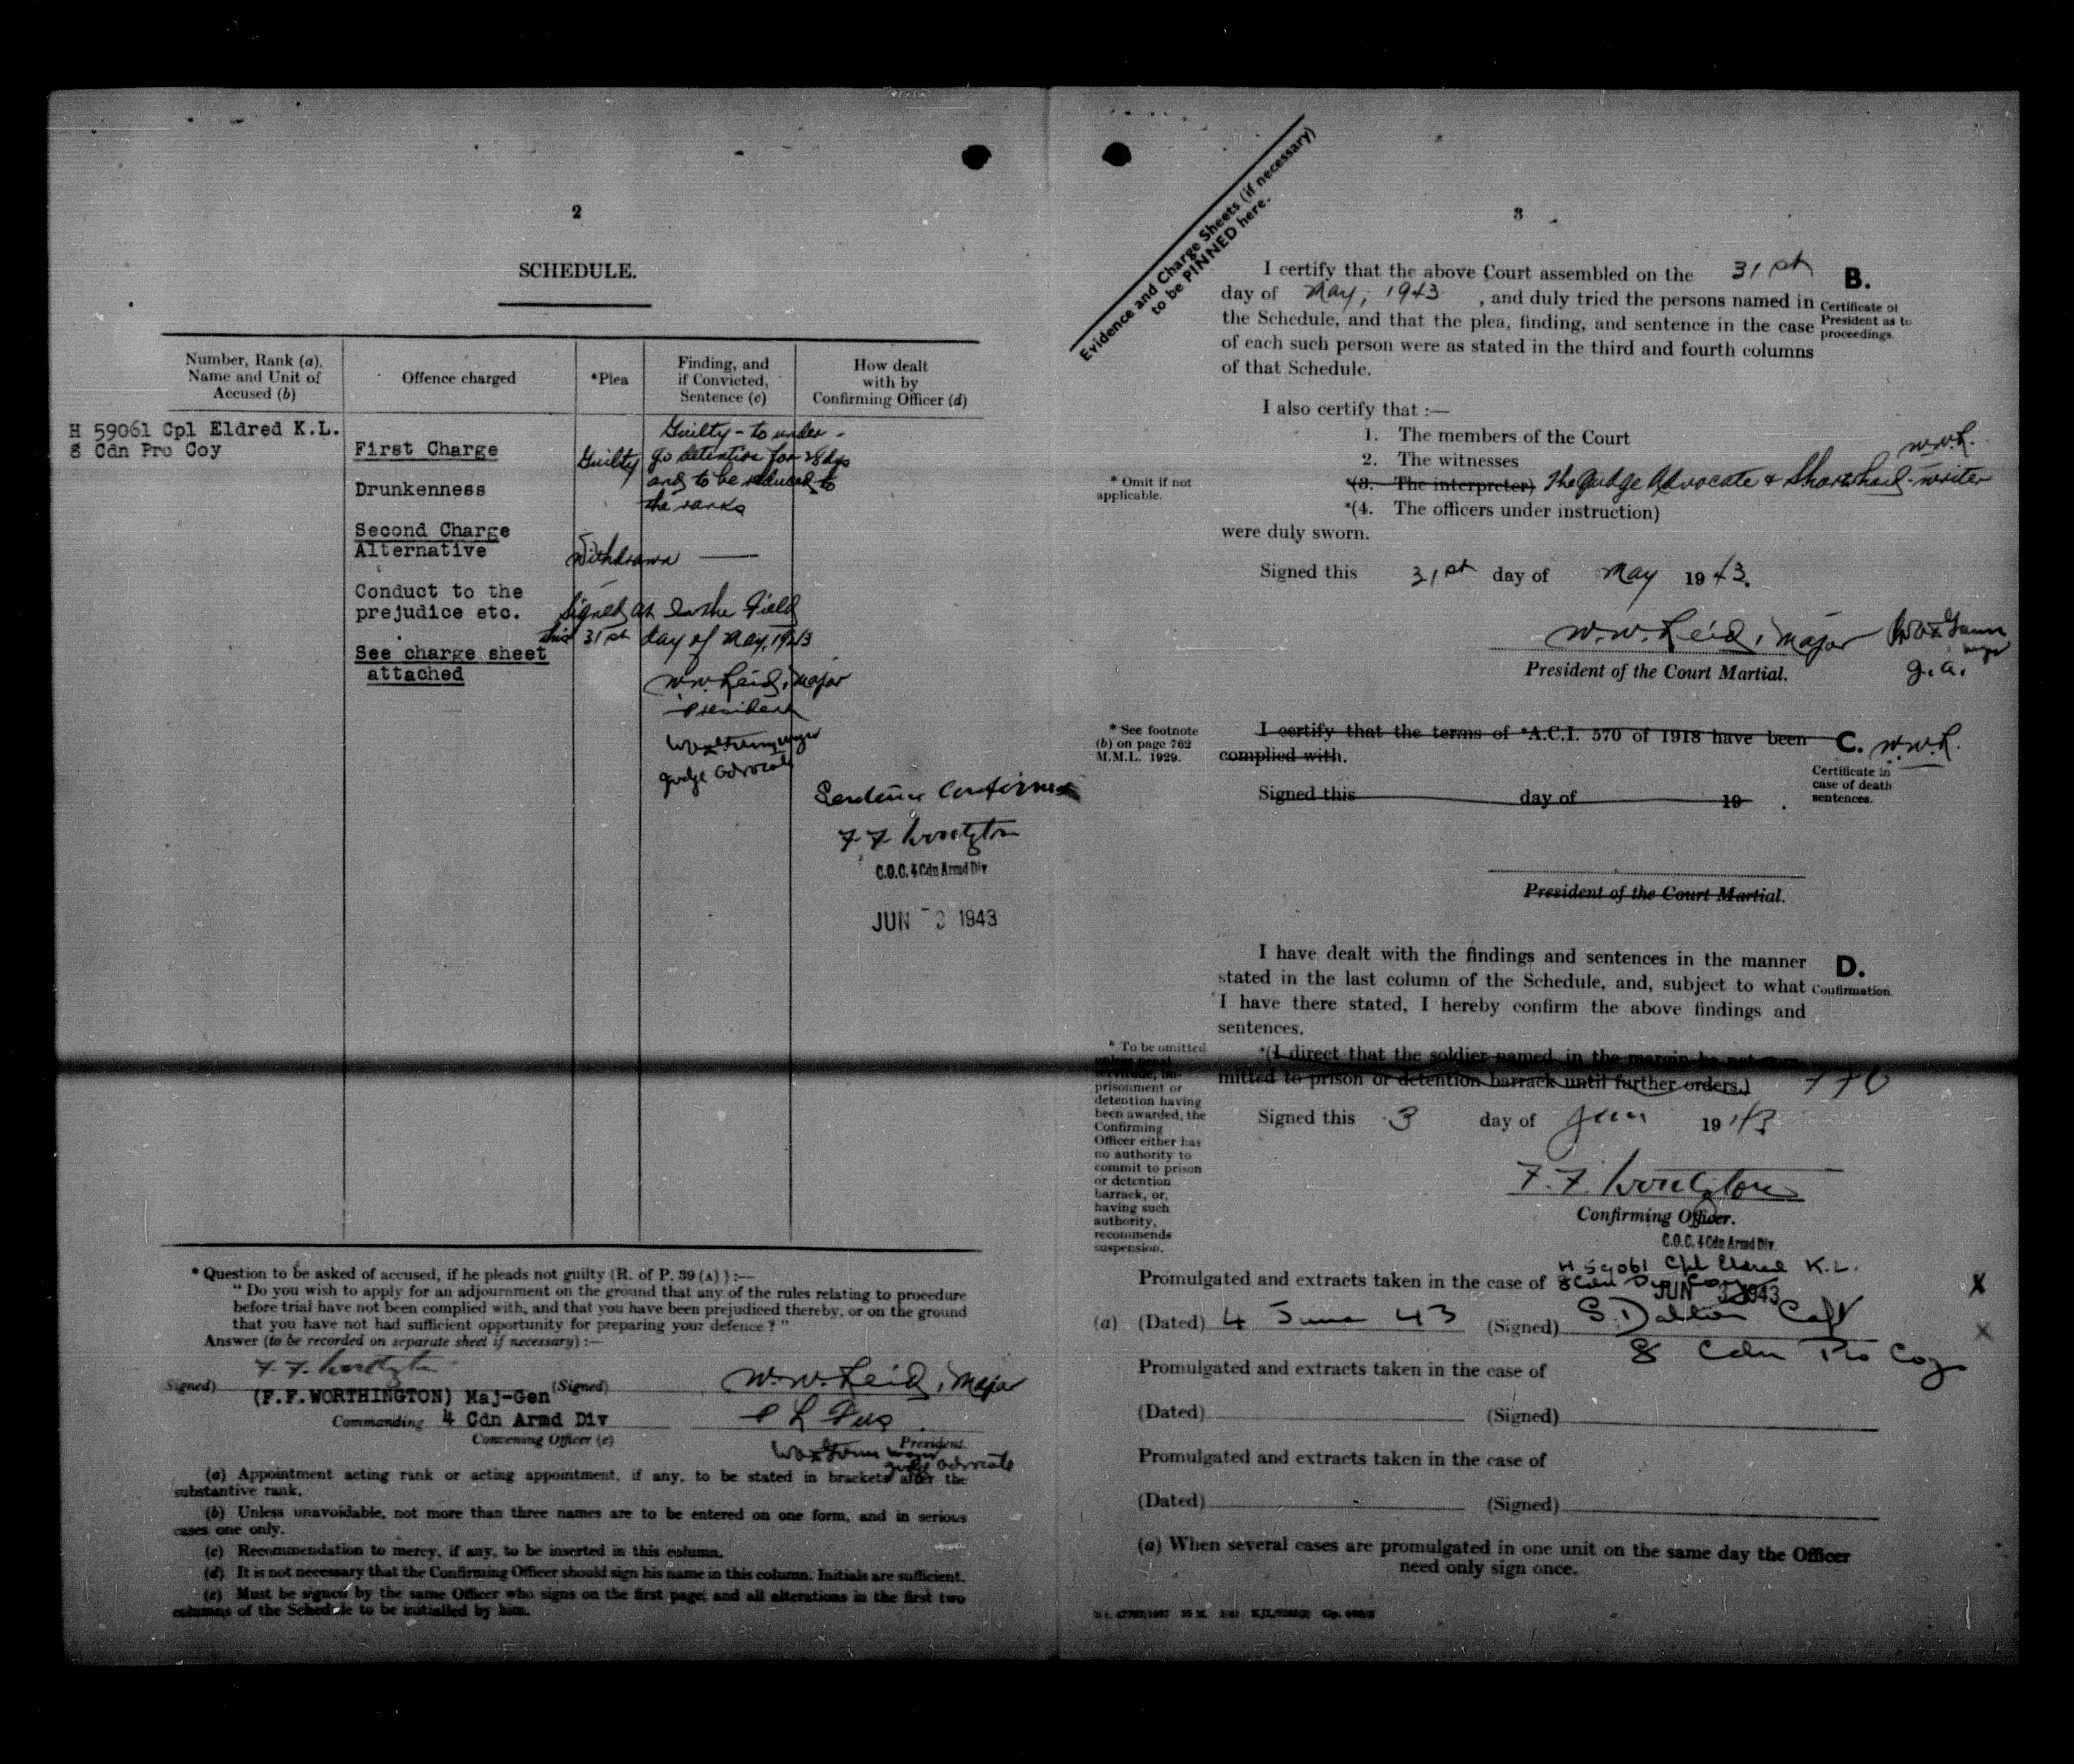 2
SCHEDULE.
Number, Rank (a),
Name and Unit of
Accused (b)
Offence charged
*Plea
Finding, and
if Convicted,
Sentence (c)
How dealt
with by
Confirming Officer (d)
H 59061 Cpl Eldred K.L.
8 Cdn Pro Coy
First Charge
Drunkenness
Second Charge
Alternative
Conduct to the
prejudice etc.
See charge sheet
attached
Guilty
Guilty - to under -
go detention for 28 dys
and to be reduced to
the ranks
Withdrawn
Signed at In the Field
this 31st day of May, 1943
W.W. Reid, Major
President
Judge Advocate
Sentence Confirmed
F F Worthington
G.O.C. 4 Cdn Armd Div
JUN 3 1943
* Question to be asked of accused, if he pleads not guilty (R. of P. 39 (A) ) :—
" Do you wish to apply for an adjournment on the ground that any of the rules relating to procedure
before trial have not been complied with, and that you have been prejudiced thereby, or on the ground
that you have not had sufficient opportunity for preparing your defence ? "
Answer (to be recorded on separate sheet if necessary) :—
F. F. Worthington
(Signed)
(F.F.WORTHINGTON) Maj-Gen
Commanding 4 Cdn Armd Div
Convening Officer (e)
(Signed) W.W. Reid, Major
President.
Judge Advocate
(a) Appointment acting rank or acting appointment, if any, to be stated in brackets after the
substantive rank.
(b) Unless unavoidable, not more than three names are to be entered on one form, and in serious
cases one only.
(c) Recommendation to mercy, if any, to be inserted in this column.
(d) It is not necessary that the Confirming Officer should sign his name in this column. Initials are sufficient.
(e) Must be signed by the same Officer who signs on the first page; and all alterations in the first two
columns of the Schedule to be initialled by him.
3
Evidence and Charge Sheets (if necessary)
to be PINNED here.
I certify that the above Court assembled on the 31st
day of May, 1943 , and duly tried the persons named in
the Schedule, and that the plea, finding, and sentence in the case
of each such person were as stated in the third and fourth columns
of that Schedule.
B.
Certificate of
President as to
proceedings.
I also certify that :—
1. The members of the Court
2. The witnesses
W.W.R.
* Omit if not
applicable.
*(3. The interpreter) The Judge Advocate & Shorthand-writer
*(4. The officers under instruction)
were duly sworn.
Signed this 31st day of May 1943.
W.W. Reid, Major
President of the Court Martial.
J.A.
* See footnote
(b) on page 762
M.M.L. 1929.
I certify that the terms of *A.C.I. 570 of 1918 have been
complied with.
C. W.W.R.
Certificate in
case of death
sentences.
Signed this day of 19 .
President of the Court Martial.
I have dealt with the findings and sentences in the manner
stated in the last column of the Schedule, and, subject to what
I have there stated, I hereby confirm the above findings and
sentences.
D.
Confirmation.
* To be omitted
unless penal
servitude, im-
prisonment or
detention having
been awarded, the
Confirming
Officer either has
no authority to
commit to prison
or detention
barrack, or,
having such
authority,
recommends
suspension.
*(I direct that the soldier named in the margin be not com-
mitted to prison or detention barrack until further orders.)
Signed this 3 day of June 1943
F. F. Worthington
Confirming Officer.
G.O.C. 4 Cdn Armd Div.
JUN 3 1943
Promulgated and extracts taken in the case of H 59061 Cpl Eldred K.L.
8 Cdn Pro Coy
(a) (Dated) 4 June 43 (Signed) S. Dalton Capt
8 Cdn Pro Coy
Promulgated and extracts taken in the case of
(Dated) (Signed)
Promulgated and extracts taken in the case of
(Dated) (Signed)
(a) When several cases are promulgated in one unit on the same day the Officer
need only sign once.